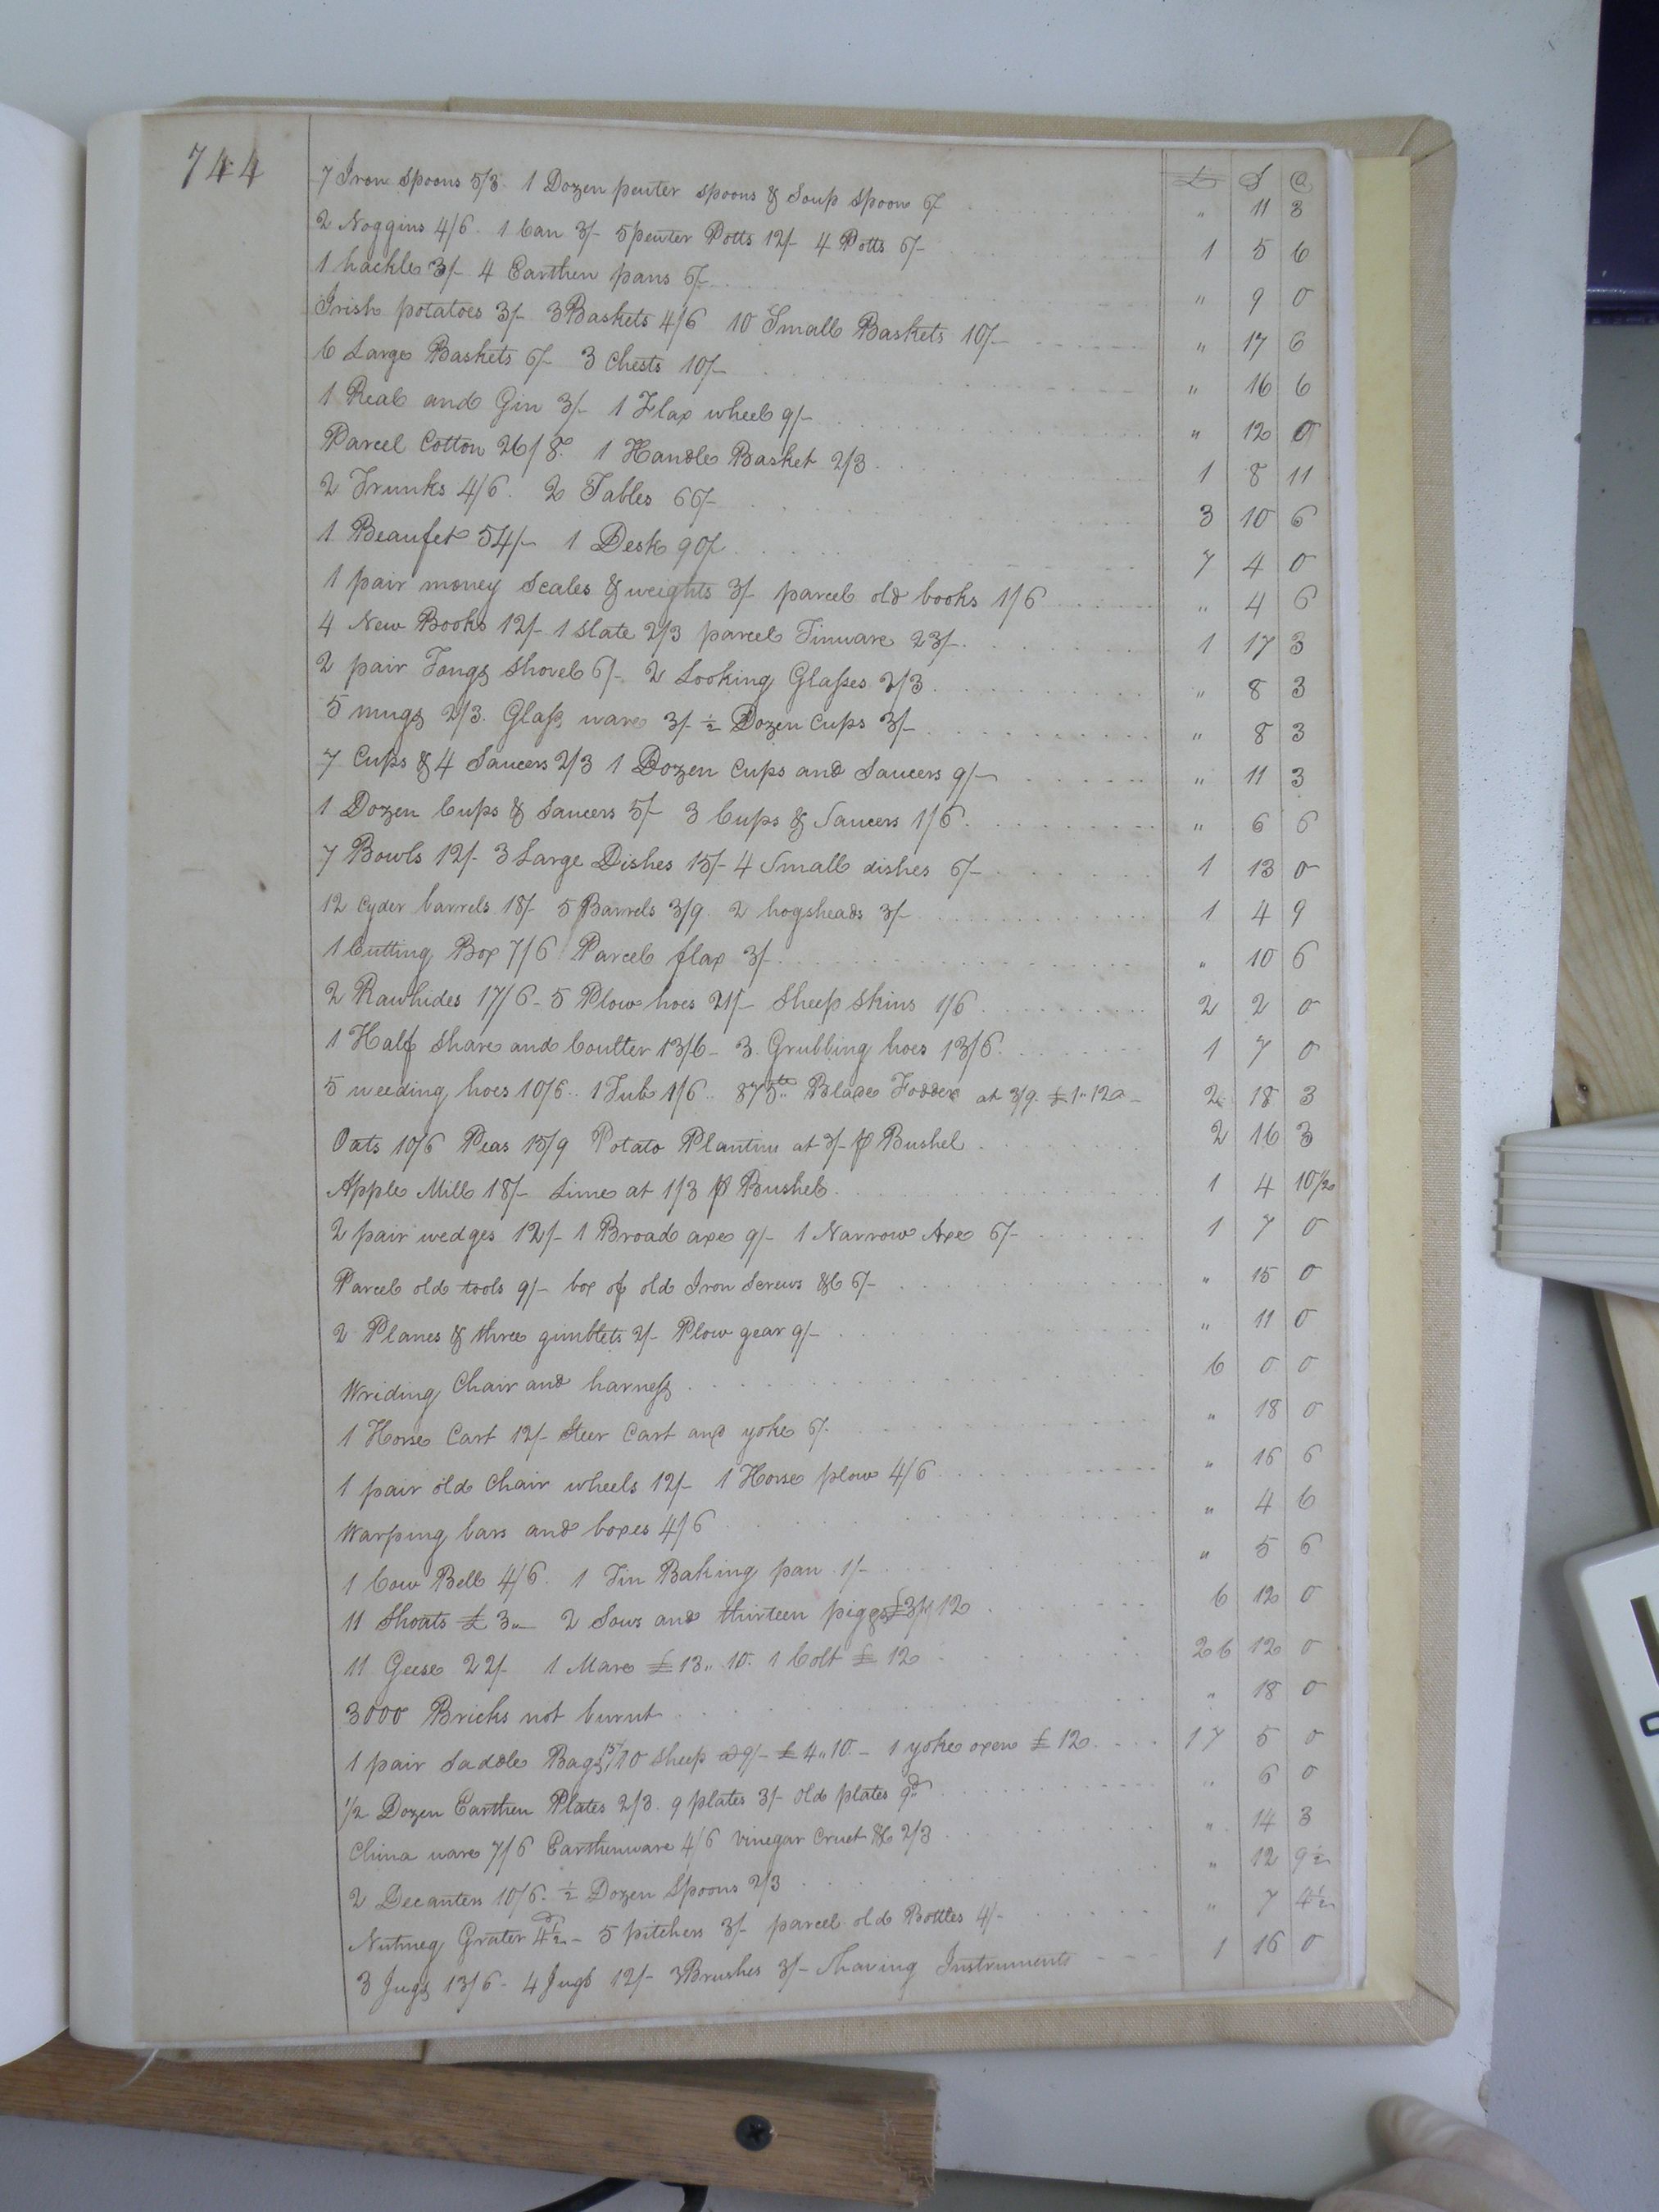 744
£ S d
7 Iron Spoons 5/3. 1 Dozen pewter spoons & Soup Spoon 6/ " 11 3
2 Noggins 4/6. 1 Can 3/- 5 pewter Potts 12/- 4 Potts 6/- 1 5 6
1 hackle 3/- 4 Earthen pans 6/- " 9 0
Irish potatoes 3/- 3 Baskets 4/6 10 Small Baskets 10/- " 17 6
6 Large Baskets 6/- 3 Chests 10/- " 16 6
1 Real and Gin 3/- 1 Flax wheel 9/- " 12 0
Parcel Cotton 26/8. 1 Handle Basket 2/3 1 8 11
2 Trunks 4/6. 2 Tables 66/- 3 10 6
1 Beaufet 54/- 1 Desk 90/- 7 4 0
1 pair money Scales & weights 3/- parcel old books 1/6 " 4 6
4 New Books 12/- 1 Slate 2/3 parcel Tinware 23/- 1 17 3
2 pair Tongs Shovel 6/- 2 Looking Glasses 2/3 " 8 3
5 mugs 2/3. Glass ware 3/- ½ Dozen Cups 3/- " 8 3
7 Cups & 4 Saucers 2/3 1 Dozen Cups and Saucers 9/- " 11 3
1 Dozen Cups & Saucers 5/- 3 Cups & Saucers 1/6 " 6 6
7 Bowls 12/- 3 Large Dishes 15/- 4 Small dishes 6/- 1 13 0
12 Cyder barrels 18/- 5 Barrels 3/9 2 hogsheads 3/- 1 4 9
1 Cutting Box 7/6 Parcel flax 3/- " 10 6
2 Rawhides 17/6 - 5 Plow hoes 21/- Sheep Skins 1/6 2 2 0
1 Half Share and Coulter 13/6 - 3 Grubbing hoes 13/6 1 7 0
5 weeding hoes 10/6 .. 1 Tub 1/6 .. 875 lb Blade Fodder at 3/9. £1"12 - 2 18 3
Oats 10/6 Peas 15/9 Potato Planting at 3/- p Bushel 2 16 3
Apple Mill 18/- Lime at 1/3 p Bushel 1 4 10½
2 pair wedges 12/- 1 Broad axe 9/- 1 Narrow Axe 6/- 1 7 0
Parcel old tools 9/- box of old Iron Screws &C 6/- " 15 0
2 Planes & three gimblets 2/- Plow gear 9/- " 11 0
Wriding Chair and harness 6 0 0
1 Horse Cart 12/- Steer Cart and yoke 6/- " 18 0
1 pair old Chair wheels 12/- 1 Horse plow 4/6 " 16 6
Warping bars and boxes 4/6 " 4 6
1 Cow Bell 4/6. 1 Tin Baking pan 1/- " 5 6
11 Shoats £3"- 2 Sows and thirteen piggs £3"12 6 12 0
11 Geese 22/- 1 Mare £13"10. 1 Colt £12 26 12 0
3000 Bricks not burnt " 18 0
1 pair Saddle Bags 15/ 10 Sheep @ 9/- £4"10 - 1 yoke oxen £12 17 5 0
1/2 Dozen Earthen Plates 2/3. 9 plates 3/- old plates 9d " 6 0
China ware 7/6 Earthenware 4/6 Vinegar Cruet &C 2/3 " 14 3
2 Decanters 10/6. ½ Dozen Spoons 2/3 " 12 9½
Nutmeg Grater 4½d - 5 pitchers 3/- parcel old Bottles 4/- " 7 4½
3 Jugs 13/6 - 4 Jugs 12/- 3 Brushes 3/- Shaving Instruments 1 16 0